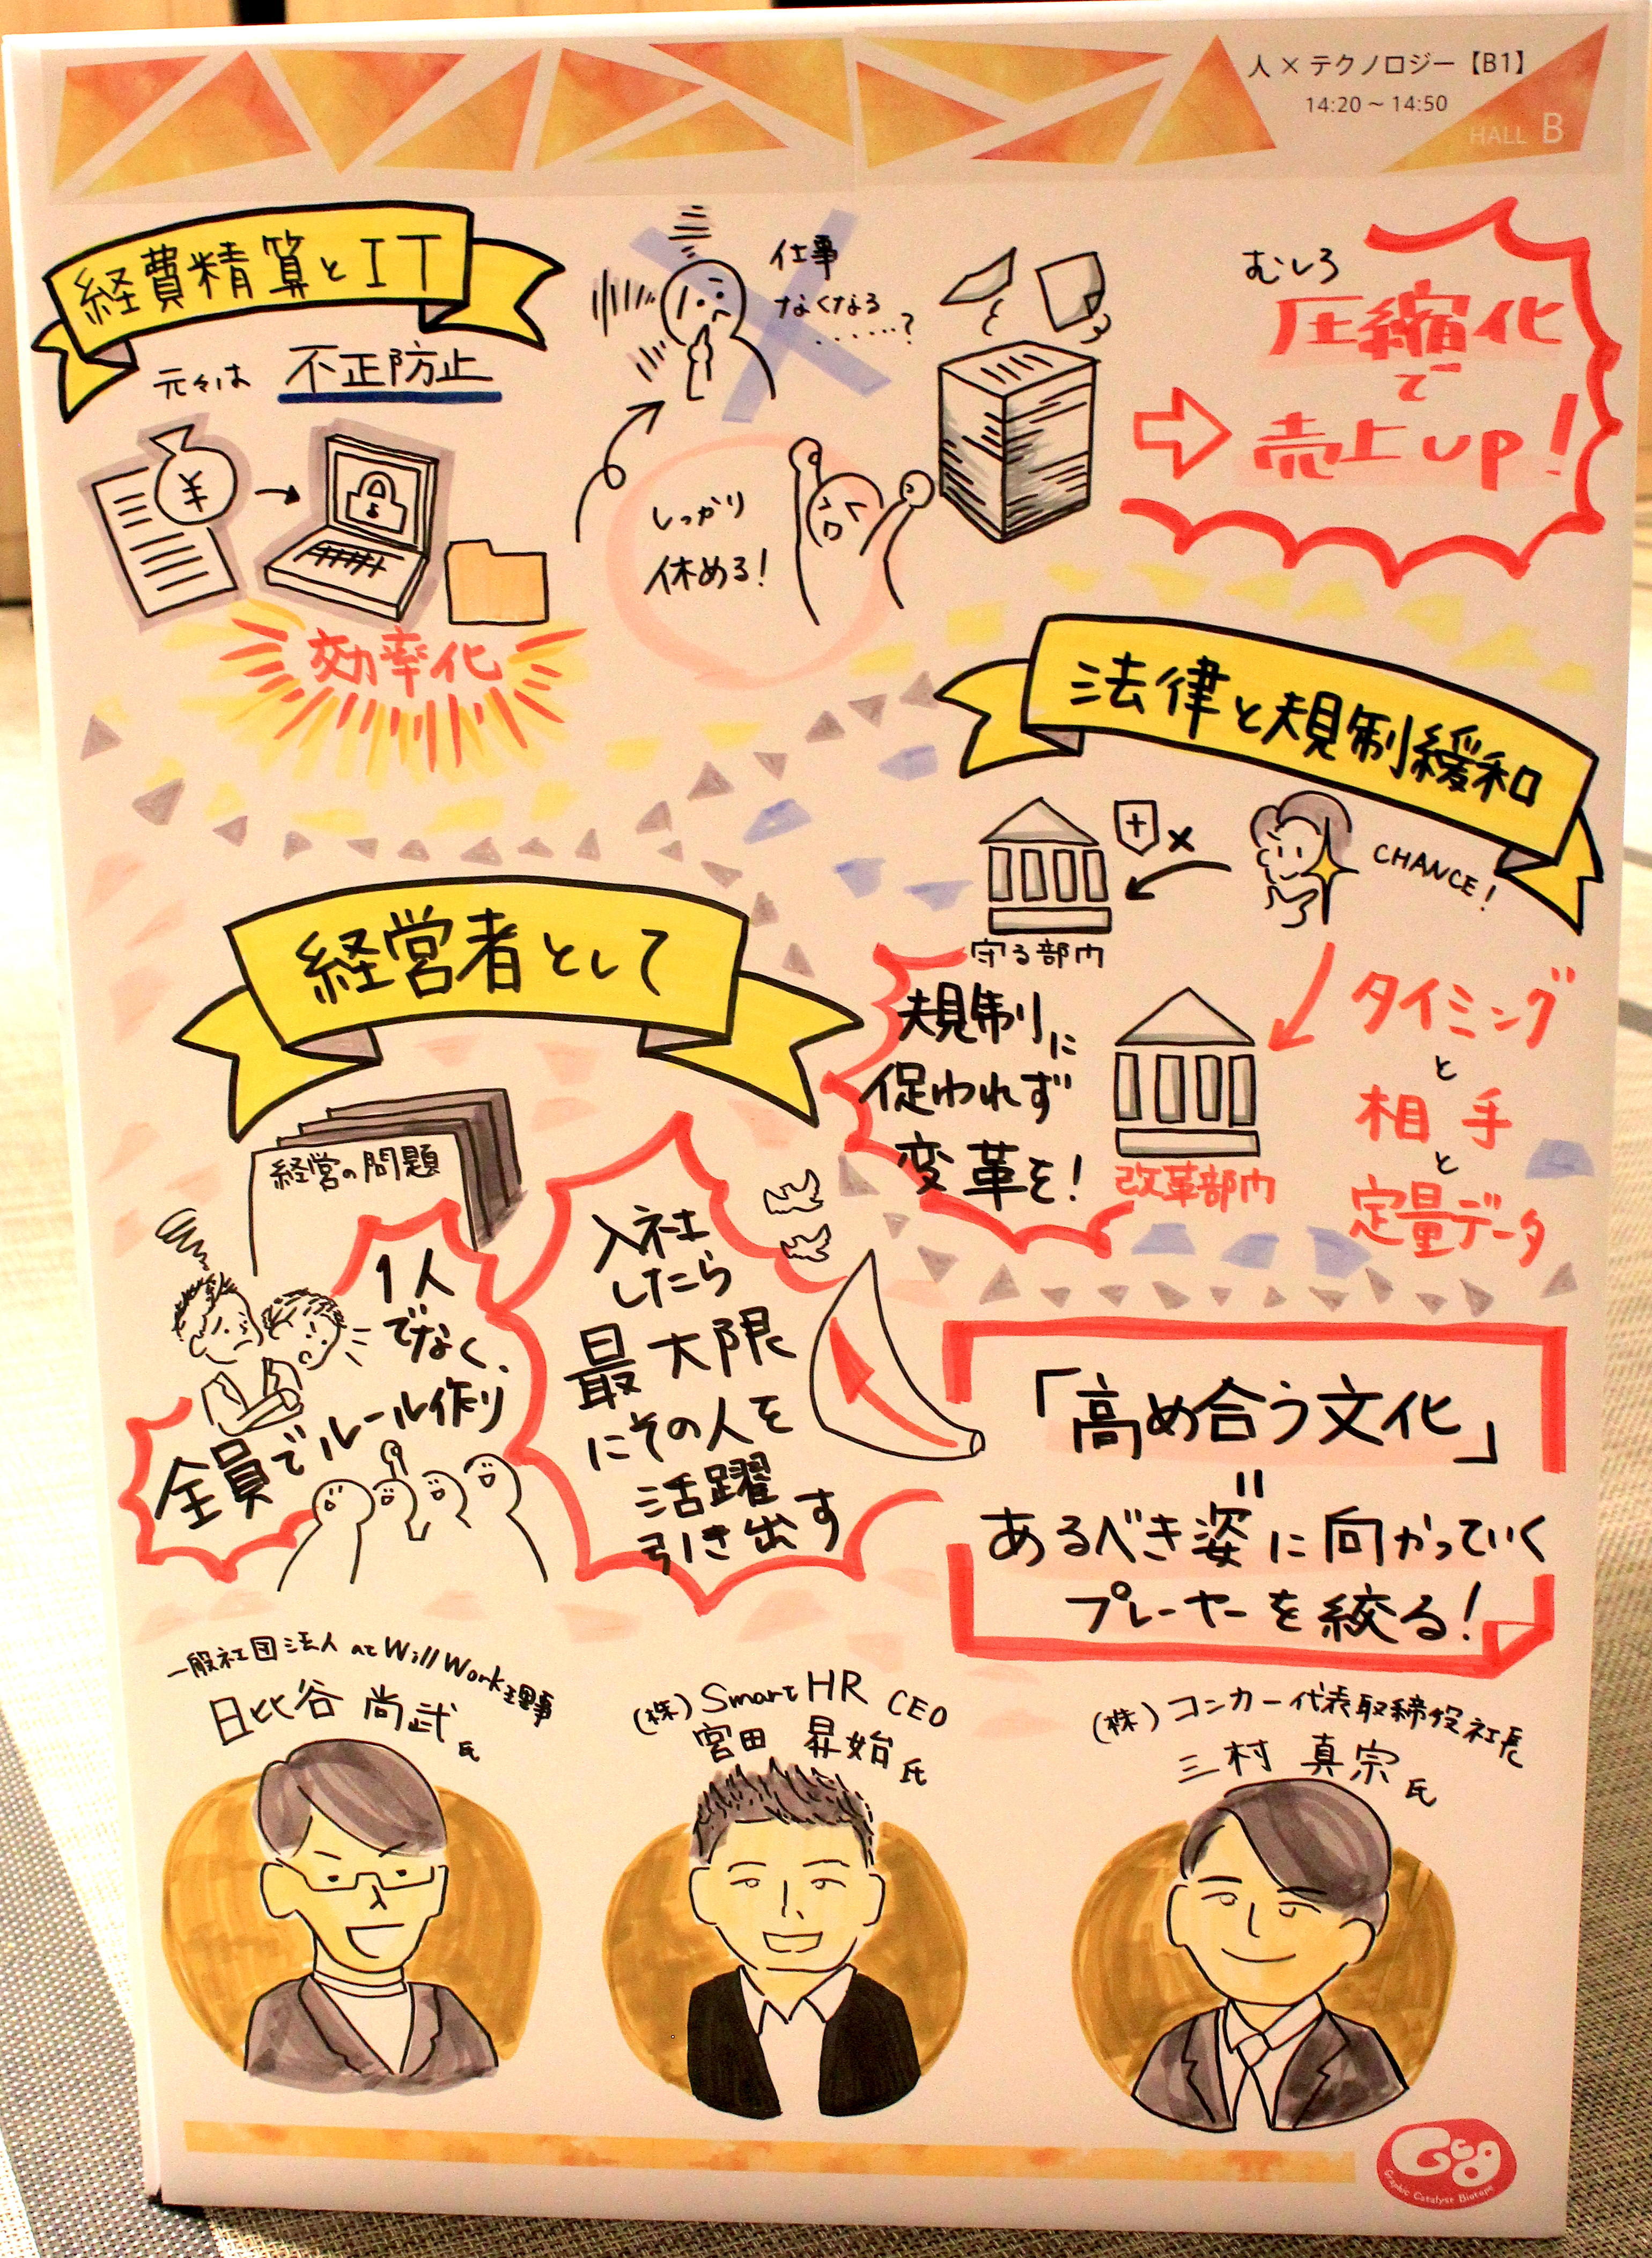 人×テクノロジー【B1】
14:20～14:50
HALL B
経費精算とIT
元々は 不正防止
¥
効率化
仕事
なくなる
……?
しっかり
休める!
むしろ
圧縮化
で
売上up!
法律と規制緩和
CHANCE!
守る部門
規制に
促われず
変革を!
改革部門
タイミング
と
相手
と
定量データ
経営者として
経営の問題
1人
でなく、
全員でルール作り
入社
したら
最大限
にその人を
活躍
引き出す
「高め合う文化」
=
あるべき姿に向かっていく
プレーヤーを絞る!
一般社団法人 at Will Work理事
日比谷 尚武氏
(株) SmartHR CEO
宮田 昇始氏
(株) コンカー代表取締役社長
三村 真宗氏
Gcb
Graphic Catalyst Biotope